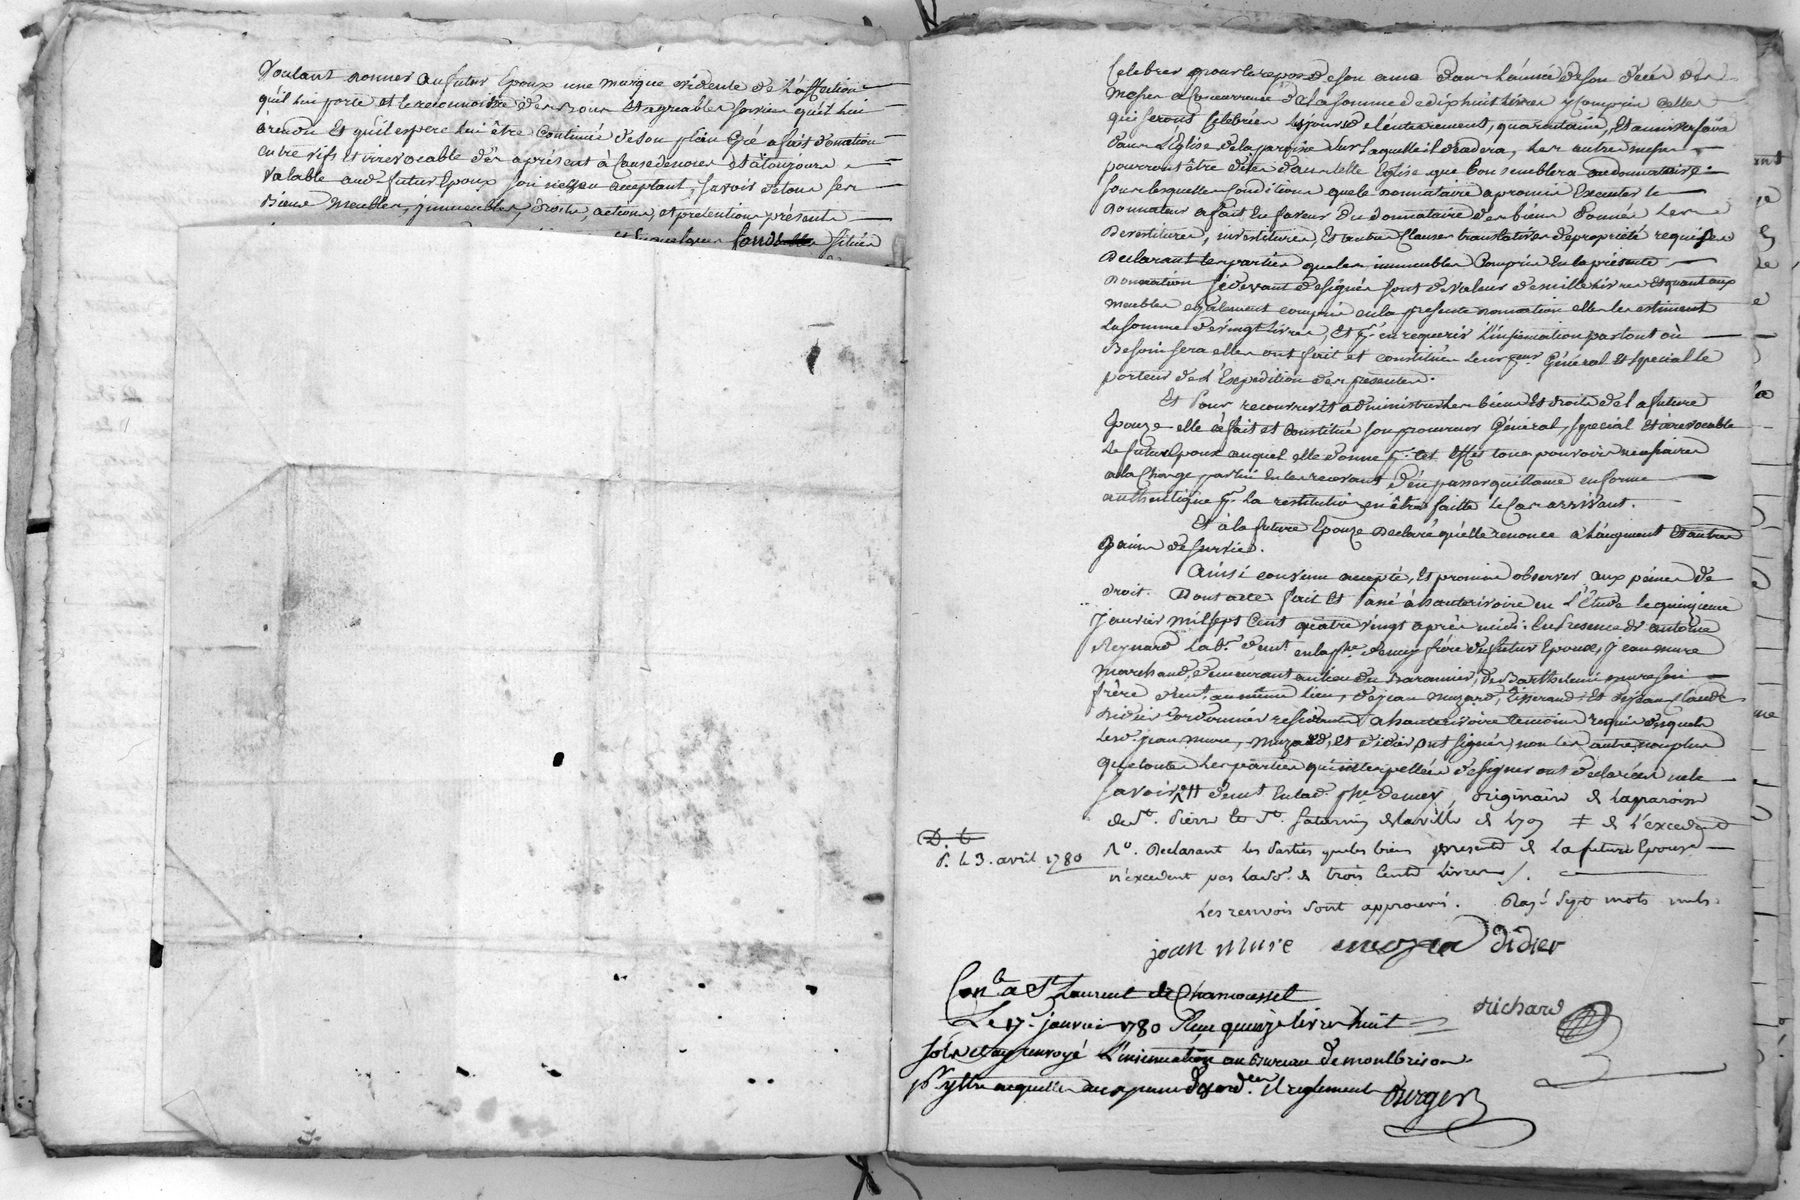 Voulant donner au futur Epoux une marque évidente de L'affection
qu'il lui porte et le reconnoitre des soins et agreables services qu'il lui
à rendu Et qu'il espere lui être continué de son plein Gré a fait donation
entre vifs et irrevocable dès a présent à cause de noces et à toujours
valable aud. futur Epoux son neveu acceptant, savoir de tous ses
Biens meubles, immeubles, droits, actions, et pretentions présents
fonds situés
Celebrer pour le repos de son ame dans L'année de son décès des
Messes a Concurrence de la somme de dixhuit Livres y Compris celles
qui seront Celebrées les jours de l'enterrement, quarantaine, Et anniversaire
dans L'Eglise de la paroisse sur Laquelle il decedera, Les autres messes
pourront être dites dans telle Eglise que bon semblera au donnataire.
sous lesquelles conditions que le donnataire a promis Executer le
Donnateur a fait En faveur du donnataire des biens donnés Les
Devestitures, investitures, Et autres Clauses translatives de propriété requises
Declarant les parties que les immeubles Compris En la présente
Donnation ci devant designés sont de valeur de mille Livres Et quant aux
meubles egalement compris en la presente donnation elles les estiment
La somme de vingt Livres, Et pr. en requerir L'insinuation partout où
Besoin sera elles ont fait et constitué Leur pcur. Général Et special le
porteur de L'Expedition des presentes.
Et Pour recouvrer Et administrer les biens Et droits de la future
Epouze elle a fait et Constitué son procureur Général, special Et irrevocable
Le futur Epoux auquel elle donne pr. cet Effet tous pouvoirs necessaires
a la Charge par lui En les recevant d'en passer quittance en forme
authentique pr. La restitution en être faitte le Cas arrivant.
Et à la future Epouze Declaré qu'elle renonce a L'augment Et autres
Gains de survies.
Ainsi convenu accepté, Et promis observer aux peines de
droit. Dont acte fait Et Passé à hauterivoire en L'Etude le quinzieme
Janvier mil sept Cent quatre vingt après midi: En Presence de antoine
Reynard Lab.r demt. en la p.sse demey frère du futur Epoux, Jean mure
marchand, demeurant au lieu du Baronnier, de Barthelemi mure son
frère demt. au même Lieu, de jean mozard, tisserand, Et de jean Claude
Didier Cordonnier residents a hauterivoire temoins requis desquels
Lesd. jean mure, mozard, et didier ont signés, non les autres non plus
que toutes Les parties qui interpellées de signer ont declarées ne le
savoir # demt En lad. p.sse demey, originaire de La paroisse
de St. Pierre Et St. Saturnin de la ville de Lyon ‡ de L'excedent
No. Declarant les Parties que les biens presents de La future Epouse
n'excedent pas La so. de trois Cents Livres /.
Les renvois sont approuvés. Rayé Sept mots nuls.
D. t.
P. le 3. avril 1780
jean mure mozard didier
Richard
Con.lé a St Laurent de Chamousset
Le 17. janvier 1780 Reçu quinze livres huit
sols et ay renvoyé L'insinuation au Bureau de montbrison
Berger